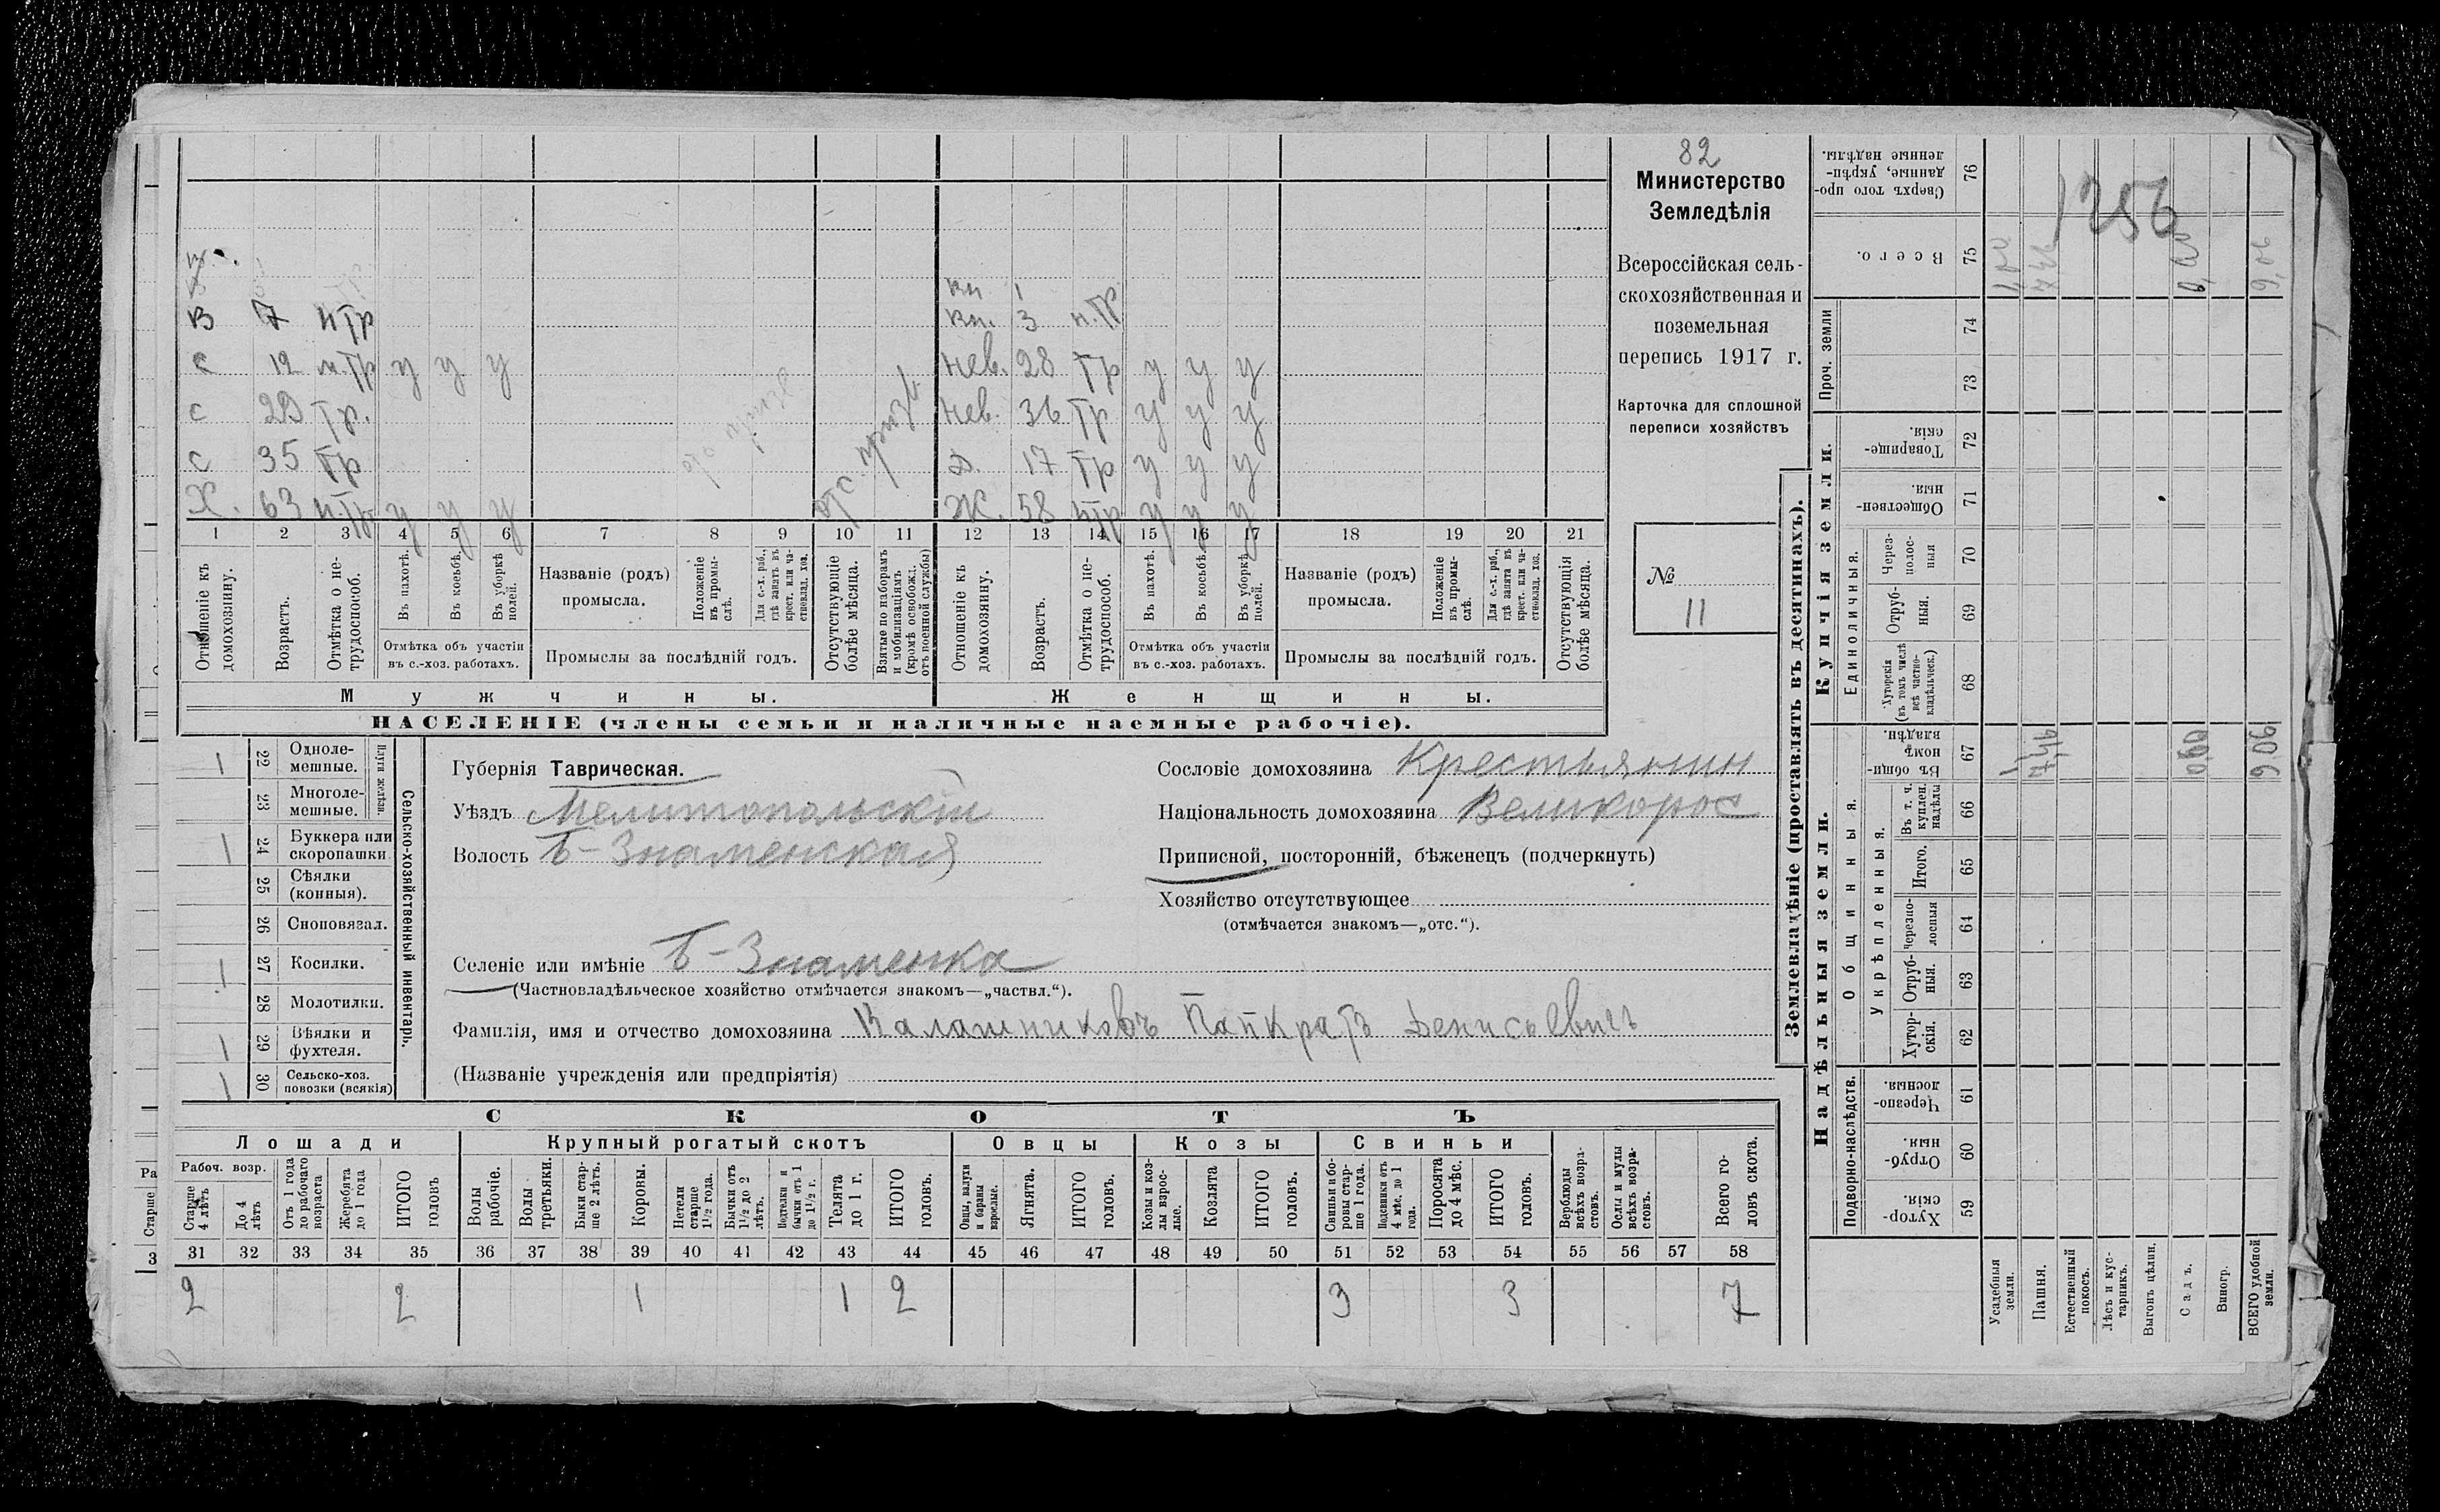 82
Министерство
Земледѣлія
Всероссійская сель-
скохозяйственная и
поземельная
перепись 1917 г.
Карточка для сплошной
переписи хозяйствъ
№
11
1256
в 7 н.тр
с 12 н.тр у у у
с 29 тр.
с 35 тр
Х. 63 н.тр у у у
отс. призв.
кн 1
вн. 3 н.тр
нев. 28 тр у у у
нев. 36 тр у у у
д. 17 тр у у у
Ж. 58 нтр у у у
1 2 3 4 5 6 7 8 9 10 11 12 13 14 15 16 17 18 19 20 21
Отношеніе къ домохозяину.
Возрастъ.
Отмѣтка о не-трудоспособ.
Въ пахотѣ.
Въ косьбѣ.
Въ уборкѣ полей.
Отмѣтка объ участіи въ с.-хоз. работахъ.
Названіе (родъ) промысла.
Положеніе въ промы-слѣ.
Для с.-х. раб., гдѣ занятъ въ крест. или ча-стновлад. хоз.
Промыслы за послѣдній годъ.
Отсутствующіе болѣе мѣсяца.
Взятые по наборамъ и мобилизаціямъ (кромѣ освобожд. отъ военной службы)
Отношеніе къ домохозяину.
Возрастъ.
Отмѣтка о не-трудоспособ.
Въ пахотѣ.
Въ косьбѣ.
Въ уборкѣ полей.
Отмѣтка объ участіи въ с.-хоз. работахъ.
Названіе (родъ) промысла.
Положеніе въ промы-слѣ.
Для с.-х. раб., гдѣ занята въ крест. или ча-стновлад. хоз.
Промыслы за послѣдній годъ.
Отсутствующія болѣе мѣсяца.
Мужчины. Женщины.
НАСЕЛЕНІЕ (члены семьи и наличные наемные рабочіе).
Сельско-хозяйственный инвентарь.
Плуги желѣзн.
1 22 Одноле-мешные.
23 Многоле-мешные.
1 24 Буккера или скоропашки
25 Сѣялки (конныя).
26 Сноповязал.
1 27 Косилки.
28 Молотилки.
1 29 Вѣялки и фухтеля.
1 30 Сельско-хоз. повозки (всякія)
Губернія Таврическая.
Уѣздъ Мелитопольскій
Волость Б-Знаменская
Селеніе или имѣніе Б-Знаменка
(Частновладѣльческое хозяйство отмѣчается знакомъ—„частвл.“).
Фамилія, имя и отчество домохозяина Калашниковъ Панкратъ Денисьевичъ
(Названіе учрежденія или предпріятія)
Сословіе домохозяина Крестьянин
Національность домохозяина Великорос
Приписной, посторонній, бѣженецъ (подчеркнуть)
Хозяйство отсутствующее
(отмѣчается знакомъ—„отс.“).
СКОТЪ
Лошади Крупный рогатый скотъ Овцы Козы Свиньи
Рабоч. возр.
Старше 4 лѣтъ
До 4 лѣтъ
Отъ 1 года до рабочаго возраста
Жеребята до 1 года
ИТОГО головъ
Волы рабочіе.
Волы третьяки.
Быки стар-ше 2 лѣтъ.
Коровы.
Нетели старше 1½ года.
Бычки отъ 1½ до 2 лѣтъ.
Подтелки и бычки отъ 1 до 1½ г.
Телята до 1 г.
ИТОГО головъ.
Овцы, валухи и бараны взрослые.
Ягнята.
ИТОГО головъ.
Козы и коз-лы взрос-лые.
Козлята
ИТОГО головъ.
Свиньи и бо-ровы стар-ше 1 года.
Подсвинки отъ 4 мѣс. до 1 года.
Поросята до 4 мѣс.
ИТОГО головъ.
Верблюды всѣхъ возра-стовъ.
Ослы и мулы всѣхъ возра-стовъ.
Всего го-ловъ скота.
31 32 33 34 35 36 37 38 39 40 41 42 43 44 45 46 47 48 49 50 51 52 53 54 55 56 57 58
2 2 1 1 2 3 3 7
Землевладѣніе (проставлять въ десятинахъ).
Надѣльныя земли. Купчія земли. Проч. земли
Подворно-наслѣдств.
Общинныя.
Укрѣпленныя.
Единоличныя.
76 Сверхъ того про-данные, укрѣп-ленные надѣлы.
75 Всего.
74
73
72 Товарище-скія.
71 Обществен-ныя.
70 Через-полос-ныя
69 Отруб-ныя.
68 Хуторскія (въ томъ числѣ всѣ частно-владѣльческ.)
67 Въ общин-номъ владѣн.
66 Въ т. ч. куплен. надѣлы
65 Итого.
64 Черезпо-лосныя
63 Отруб-ныя.
62 Хутор-скія.
61 Черезпо-лосныя.
60 Отруб-ныя.
59 Хутор-скія.
Усадебныя земли.
Пашня.
Естественный покосъ.
Лѣсъ и кус-тарникъ.
Выгонъ цѣлин.
Садъ.
Виногр.
ВСЕГО удобной земли.
1 7,46 0,60 9,06
1,00 7,46 0,60 9,06
Ра
Старше
3